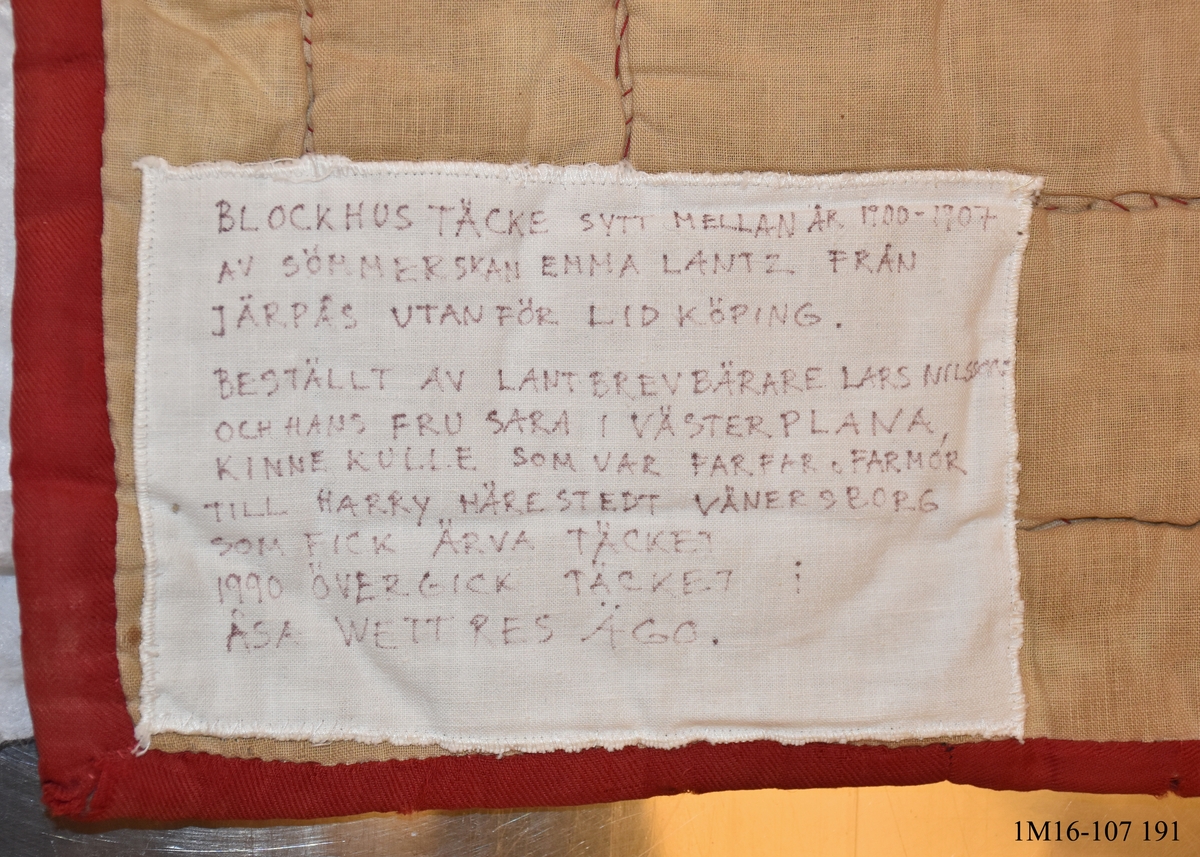 BLOCKHUS TÄCKE SYTT MELLAN ÅR 1900-1907
AV SÖMMERSKAN EMMA LANTZ FRÅN
JÄRPÅS UTANFÖR LIDKÖPING.
BESTÄLLT AV LANTBREVBÄRARE LARS NILSSON
OCH HANS FRU SARA I VÄSTERPLANA,
KINNEKULLE SOM VAR FARFAR o. FARMOR
TILL HARRY HÄRESTEDT VÄNERSBORG
SOM FICK ÄRVA TÄCKET
1990 ÖVERGICK TÄCKET i
ÅSA WETTRES ÄGO.
1M16-107 191